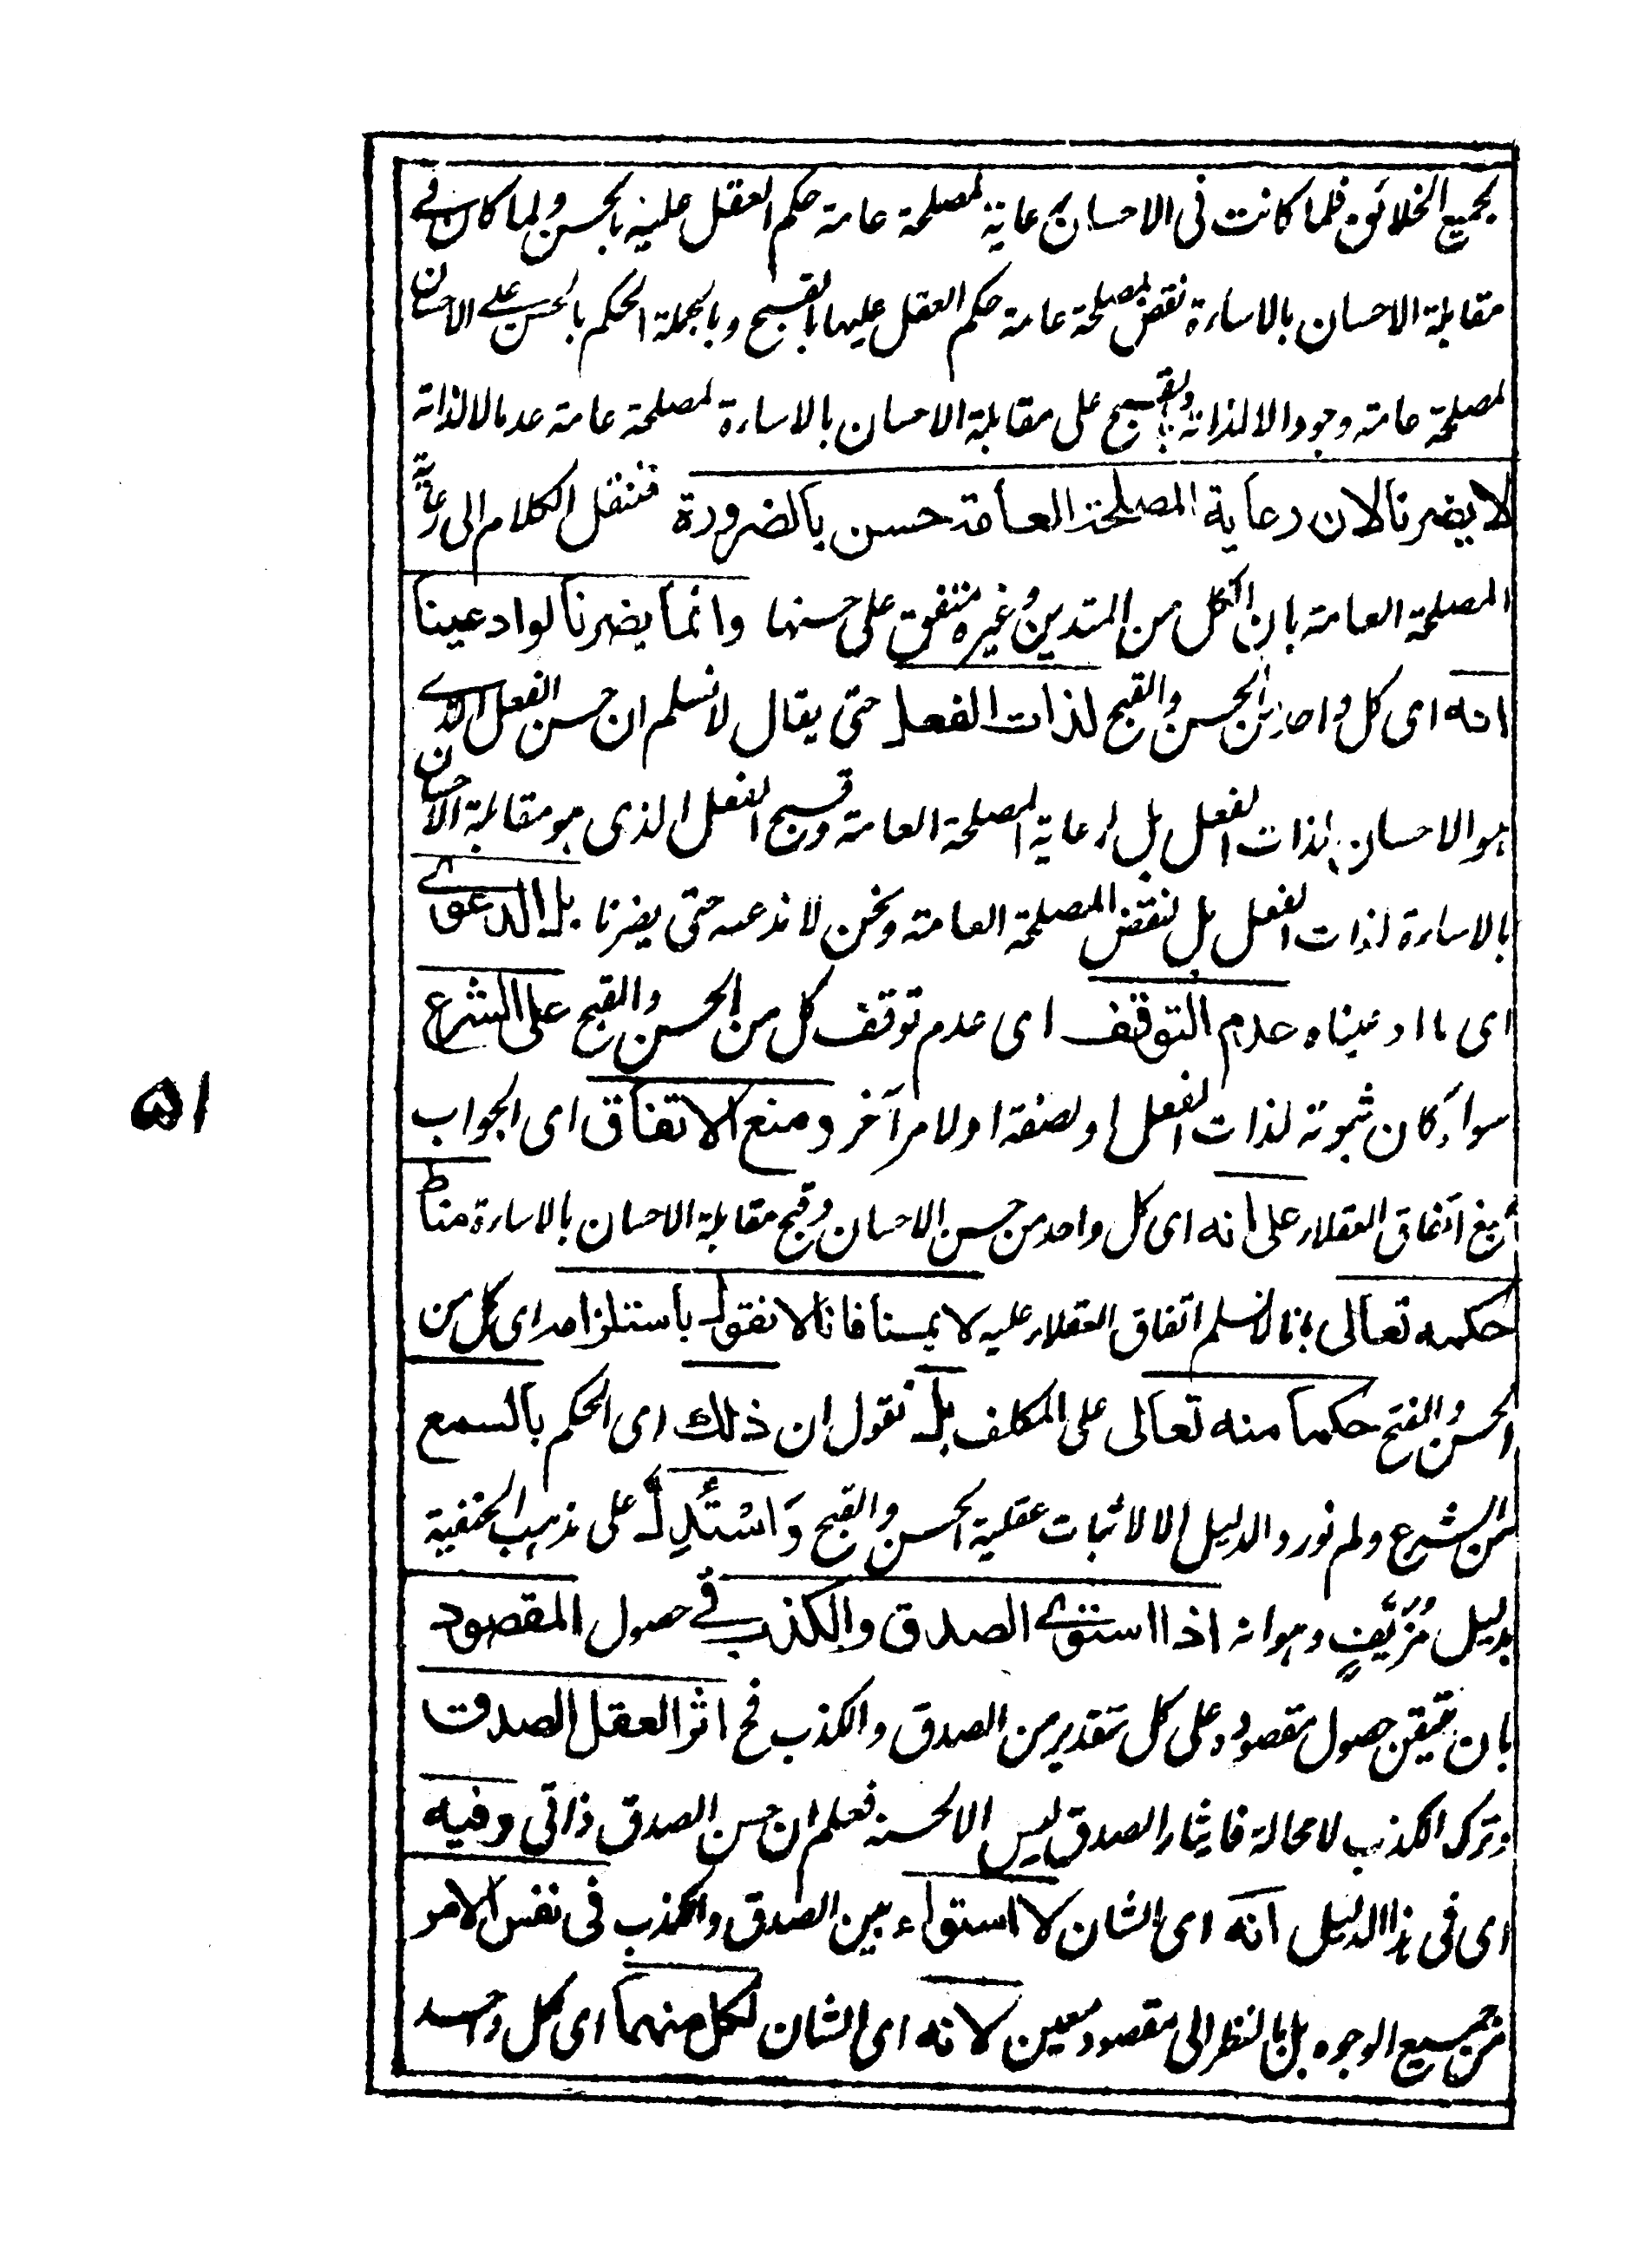 لجميع الخلائق فلما كانت فى الاحسان رعاية لمصلحة عامة حكم العقل عليه بالحسن ولما كان فى
مقابلة الاحسان بالاساءة نقض لمصلحة عامة حكم العقل عليها بالقبح وبالجملة الحكم بالحسن على الاحسان
لمصلحة عامة وجودا لا لذاته وبالقبح على مقابلة الاحسان بالاساءة لمصلحة عامة عدما لا لذاته
لا يضرنا لان رعاية المصلحة العامة حسن بالضرورة فننقل الكلام الى رعاية
المصلحة العامة بان الكل من المتدين وغيره متفق على حسنها وانما يضرنا لو ادعينا
انه اى كل واحد من الحسن والقبح لذات الفعل حتى يقال لا نسلم ان حسن الفعل الذى
هو الاحسان لذات الفعل بل لرعاية المصلحة العامة وقبح الفعل الذى هو مقابلة الاحسان
بالاساءة لذات الفعل بل لنقض المصلحة العامة ونحن لا ندعيه حتى يضرنا بل الدعوى
اى ما ادعيناه عدم التوقف اى عدم توقف كل من الحسن والقبح على الشرع
سواء كان ثبوته لذات الفعل او لصفة او لامر آخر ومنع الاتفاق اى الجواب
بمنع اتفاق العقلاء على انه اى كل واحد من حسن الاحسان وقبح مقابلة الاحسان بالاساءة مناط
حكمه تعالى بانا لا نسلم اتفاق العقلاء عليه لا يمسنا فانا لا نقول باستلزامه اى كل من
الحسن والقبح حكما منه تعالى على المكلف بل نقول ان ذلك اى الحكم بالسمع
من الشرع ولم نورد الدليل الا لاثبات عقلية الحسن والقبح وَاسْتُدِلَّ على مذهب الحنفية
بدليل مُزَيَّفٍ وهو انه اذا استوى الصدق والكذب فى حصول المقصود
بان تيقن حصول مقصوده على كل تقدير من الصدق والكذب فح اثر العقل الصدق
وترك الكذب لا محالة فايثار الصدق ليس الا لحسنه فعلم ان حسن الصدق ذاتى وفيه
اى فى هذا الدليل انه اى الشان لا استواء بين الصدق والكذب فى نفس الامر
من جميع الوجوه بل بالنظر الى مقصود معين لانه اى الشان لكل منهما اى كل واحد
۵۱